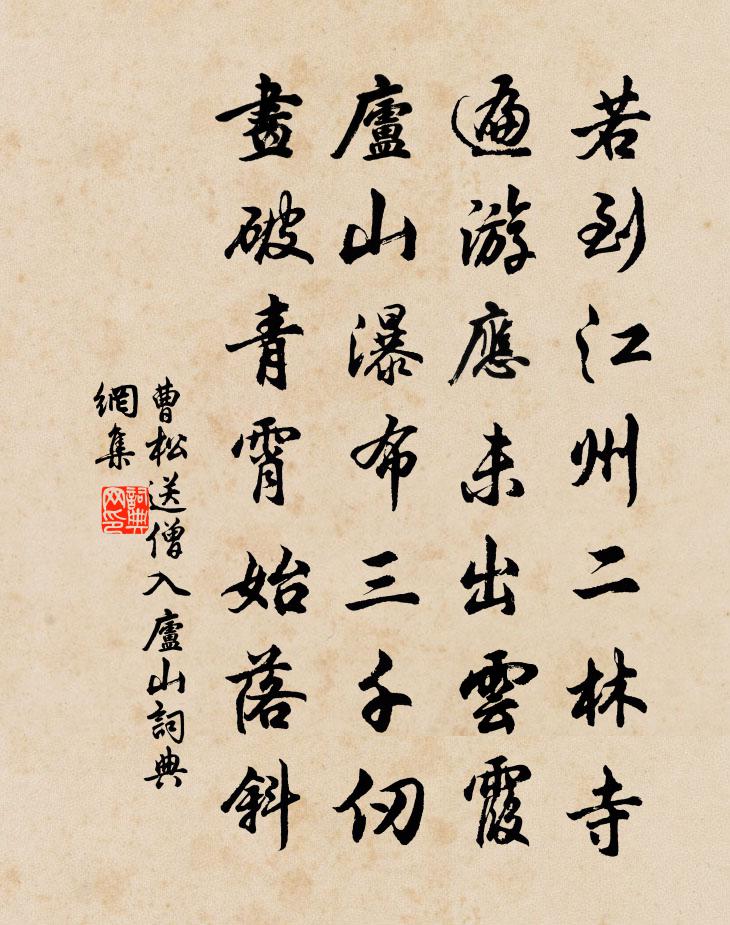 若到江州二林寺
遍游應未出雲霞
廬山瀑布三千仞
畫破青霄始落斜
曹松送僧入廬山詞典
網集
詞典
网印